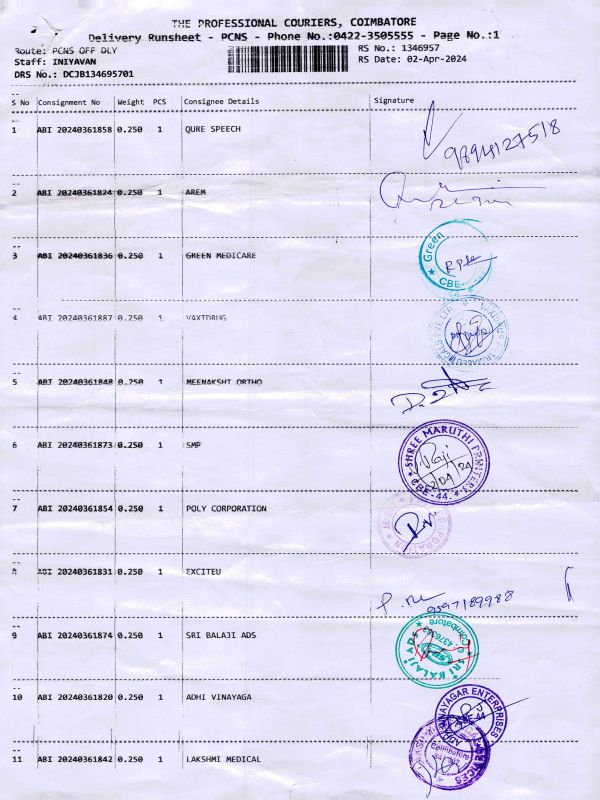 THE PROFESSIONAL COURIERS, COIMBATORE
Delivery Runsheet - PCNS - Phone No.:0422-3505555 - Page No.:1
Route: PCNS OFF DLY
RS No.: 1346957
Staff: INIYAVAN
RS Date: 02-Apr-2024
DRS No.: DCJB134695701
S No Consignment No Weight PCS Consignee Details Signature
1 ABI 20240361858 0.250 1 QURE SPEECH
9894127518
2 ABI 20240361824 0.250 1 AREM
3 ABI 20240361836 0.250 1 GREEN MEDICARE
Green
CBE-
4 ABI 20240361887 0.250 1 VAXTDRUG
5 ABI 20240361848 0.250 1 MEENAKSHI ORTHO
6 ABI 20240361873 0.250 1 SMP
SHREE MARUTHI PRINTERS
Raji
CBE-44.
7 ABI 20240361854 0.250 1 POLY CORPORATION
8 ABI 20240361831 0.250 1 EXCITEU
9597189988
9 ABI 20240361874 0.250 1 SRI BALAJI ADS
Coimbatore
SRI BALAJI ADS
10 ABI 20240361820 0.250 1 ADHI VINAYAGA
ADHI VINAYAGAR ENTERPRISES
CBE-44
11 ABI 20240361842 0.250 1 LAKSHMI MEDICAL
Coimbatore